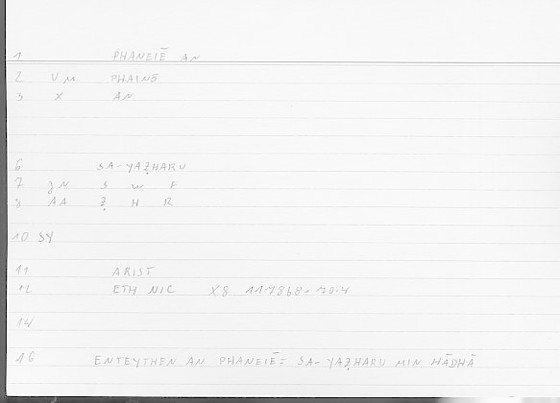 1 PHANEIĒ AN
2 VM PHAINŌ
3 X AN
6 SA-YAẒHARU
7 S W F
8 AA Ẓ H R
10 SY
11 ARIST
12 ETH NIC X8 1178b8-
14
16 ENTEYTHEN AN PHANEIĒ = SA-YAẒHARU MIN HĀDHĀ